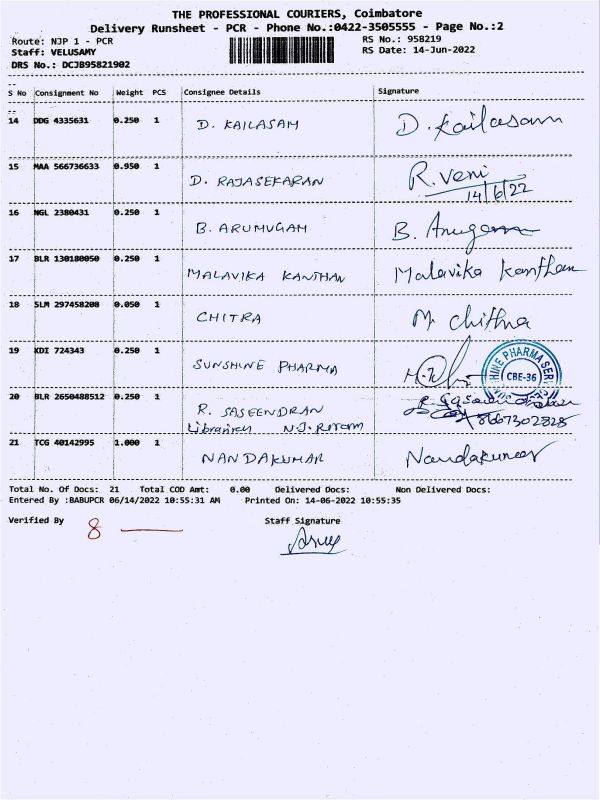 THE PROFESSIONAL COURIERS, Coimbatore
Delivery Runsheet - PCR - Phone No.:0422-3505555 - Page No.:2
Route: NJP 1 - PCR RS No.: 958219
Staff: VELUSAMY RS Date: 14-Jun-2022
DRS No.: DCJB95821902
S No Consignment No Weight PCS Consignee Details Signature
14 DDG 4335631 0.250 1 D. KAILASAM D. Kailasam
15 MAA 566736633 0.950 1 D. RAJASEKARAN R. Veni
14/6/22
16 NGL 2380431 0.250 1 B. ARUMUGAM B.
17 BLR 130180050 0.250 1 MALAVIKA KANTHAN Malavika Kanthan
18 SLM 297458208 0.050 1 CHITRA M. Chithra
19 KDI 724343 0.250 1 SUNSHINE PHARMA
SHINE PHARMA SER
CBE-36
20 BLR 2650488512 0.250 1 R. SASEENDRAN
8667302828
21 TCG 40142995 1.000 1 NANDAKUMAR Nandakumar
Total No. Of Docs: 21 Total COD Amt: 0.00 Delivered Docs: Non Delivered Docs:
Entered By :BABUPCR 06/14/2022 10:55:31 AM Printed On: 14-06-2022 10:55:35
Verified By 8 Staff Signature